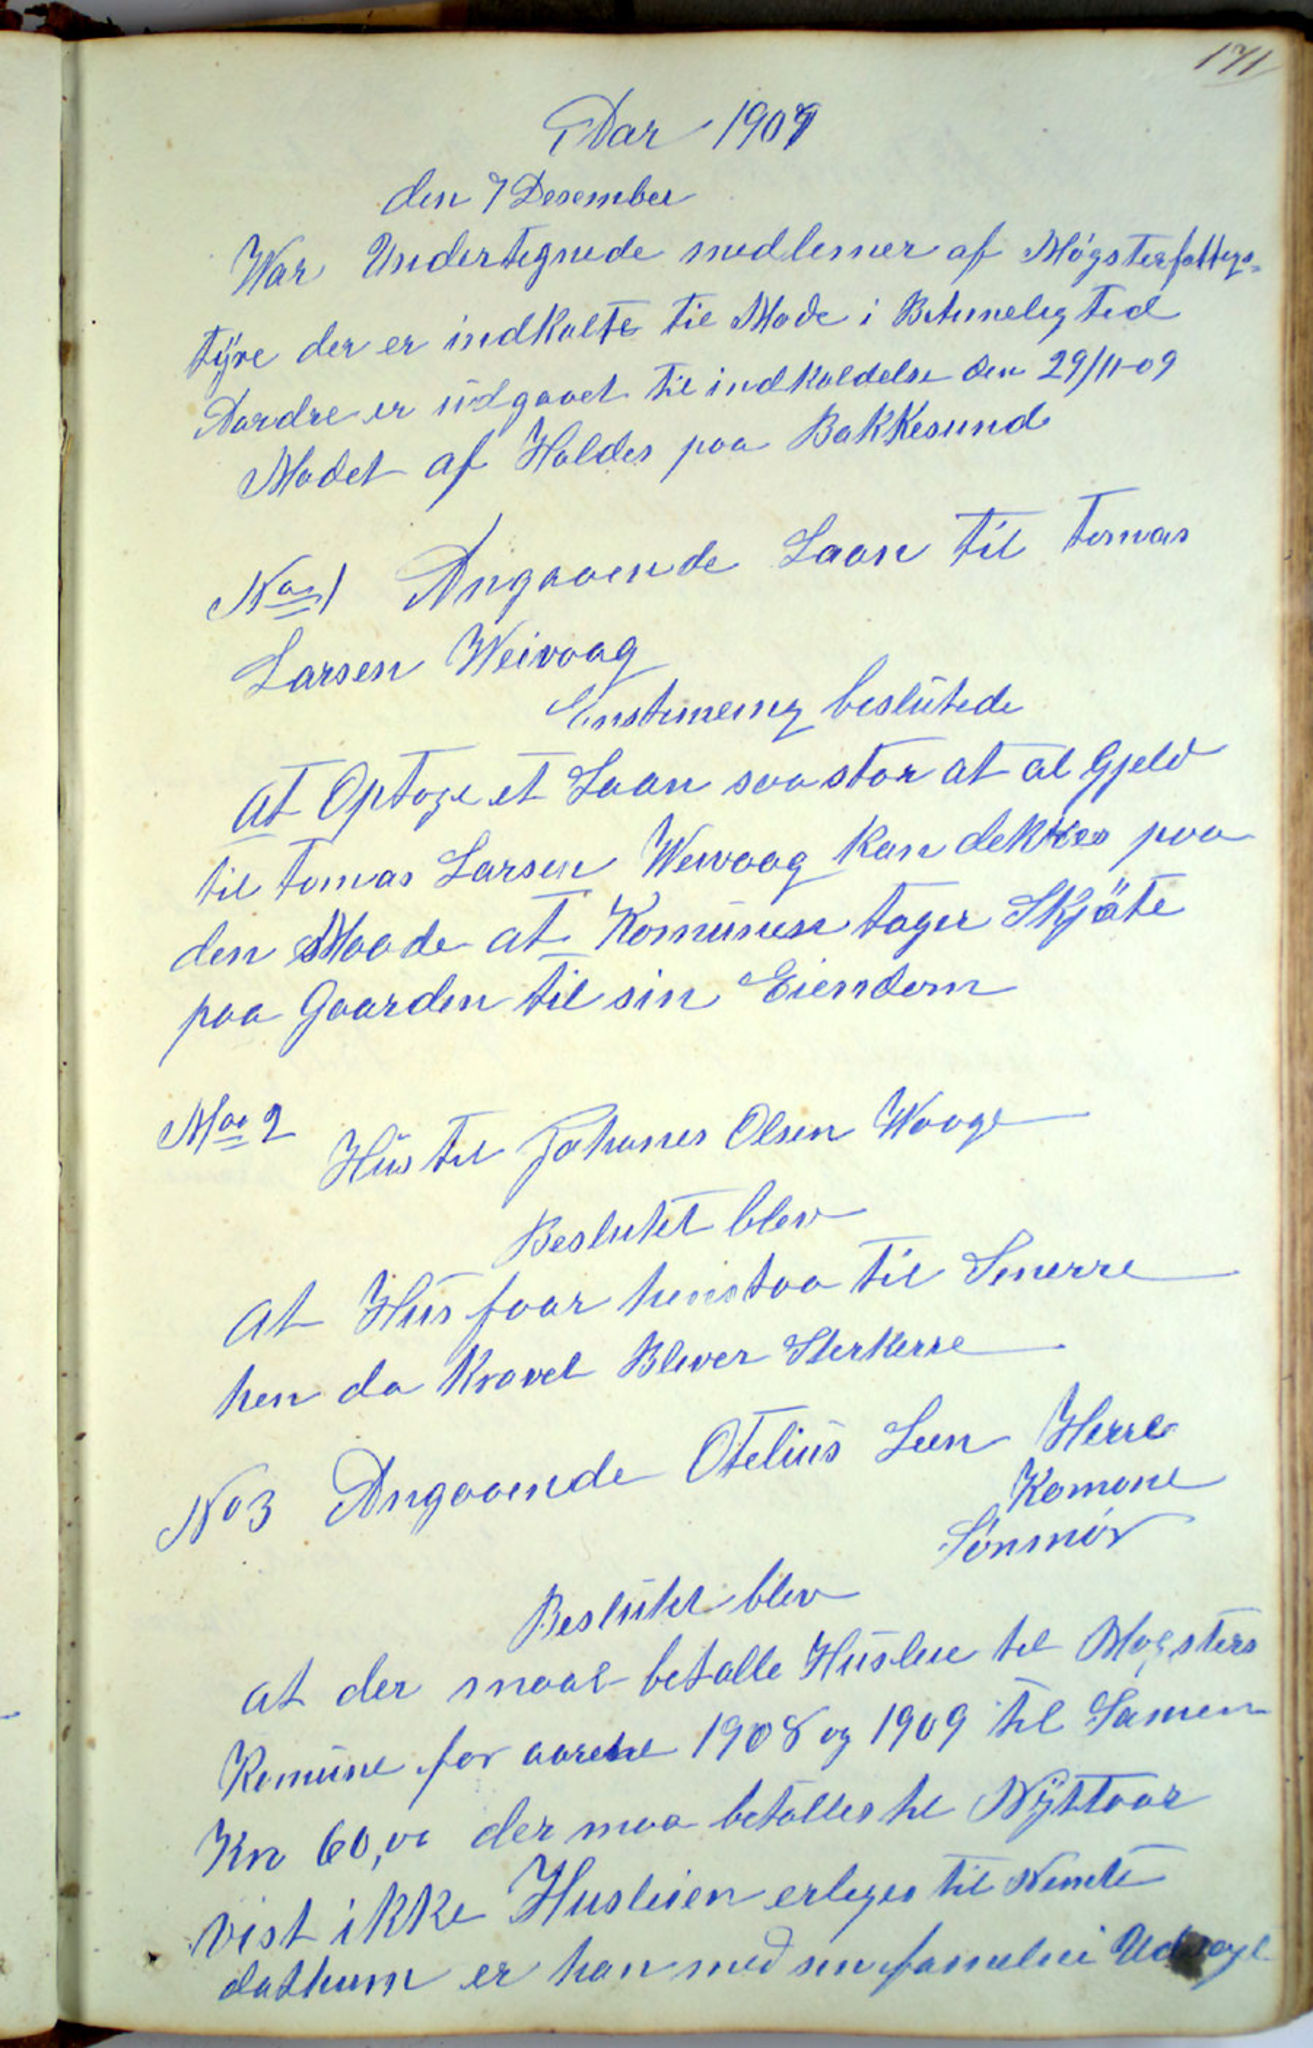 171
Aar 1909
den 7 Desember
War Undertegnede medlemer af Møgsterfattigs-
tÿre der er indkalte til Møde i Betimeligtid
Aardre er udgaaet til indkaldelse den 29/11-09
Mødet af Holdes paa Bakkesund
No 1 Angaaende Laan til Tomas
Larsen Weivaag
Enstemeng beslutede
at Optage et Laan saa stor at al Gjeld
til Tomas Larsen Weivaag kan dekkes paa
den Maade at Komunen tager Skjöte
paa Gaarden til sin Eiendom
No 2
Hus til Johanes Olsen Waage
Beslutet blev
at Hus faar henstaa til Senerre
hen da Kravet Bliver Sterkerre
No 3 Angaaende Otelius Leen Herre
Komone
Sönmör
Beslutet blev
at der maa betalle Husleie til Møgsters
Komune for aarene 1908 og 1909 til Samen
Kn 60,00 der maa betalles til Nÿttaar
vist ikke Husleien erleges til Nemte
dathum er han med sin familie i